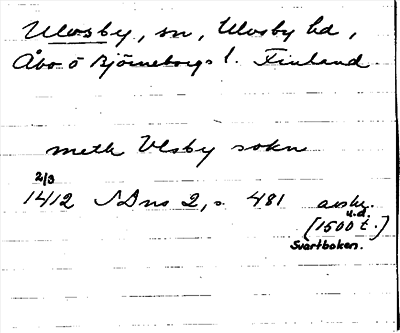 Ulvsby, sn, Ulvsby hd,
Åbo o Björneborgs l. Finland.
meth Vlsby sokn
2/3
1412 SDns 2, s. 481 avskr.
u.d.
(1500 t.)
Svartboken.